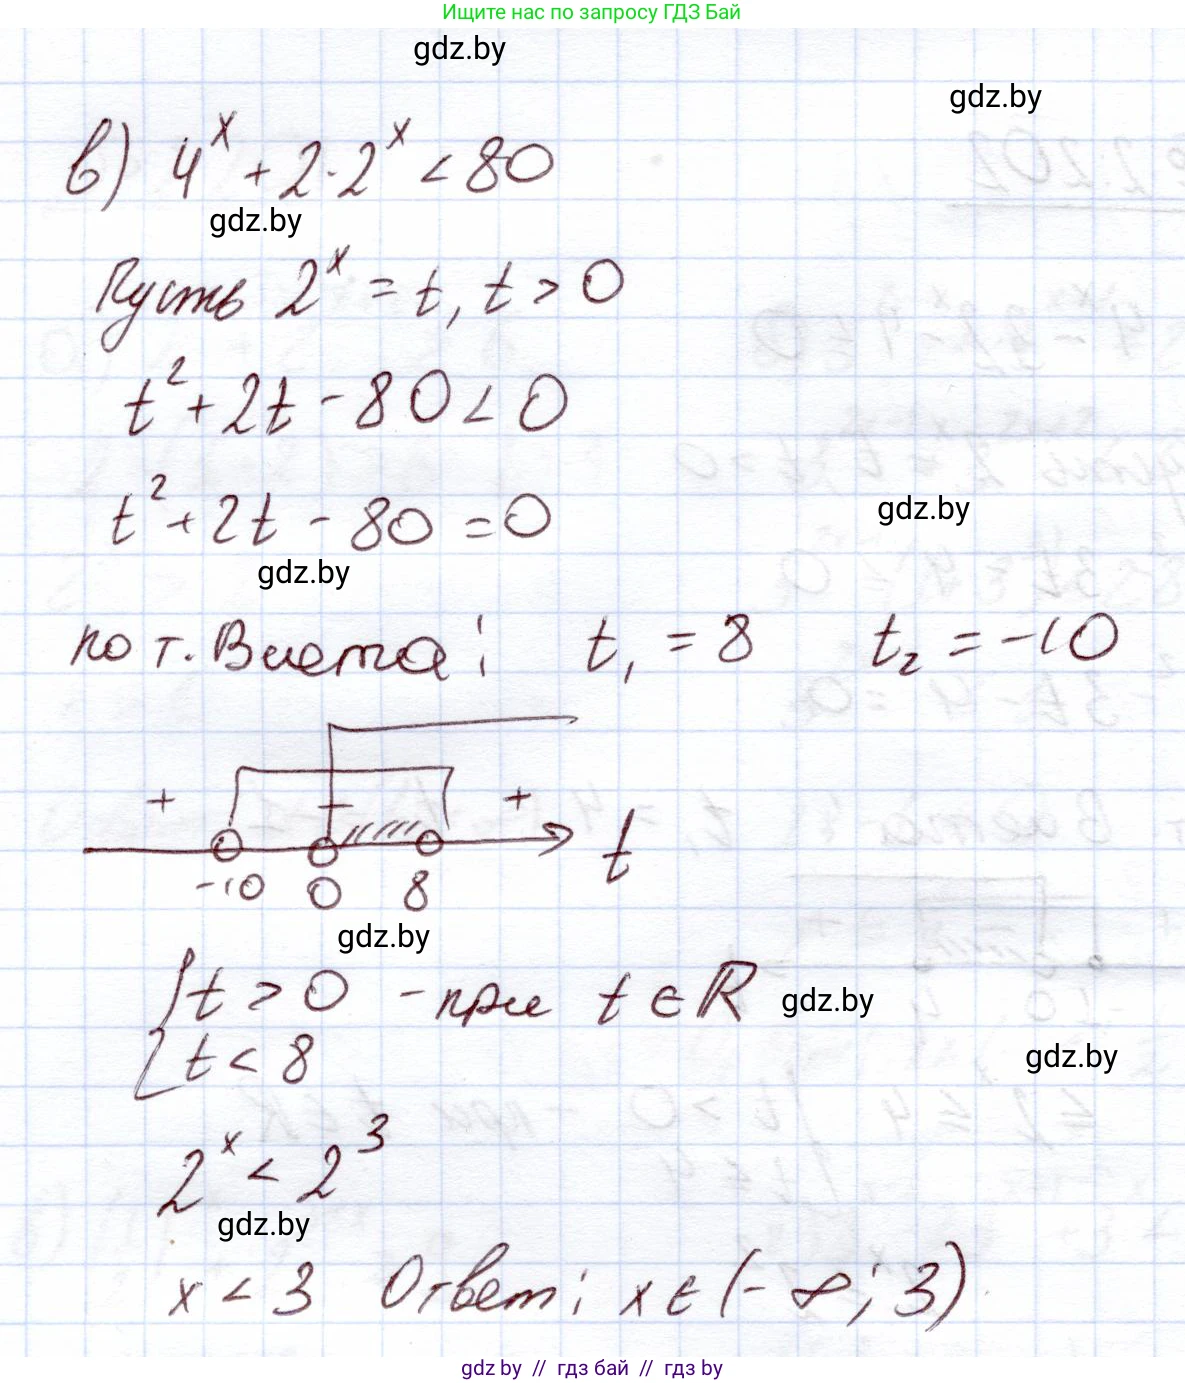 Ищите нас по запросу ГДЗ Бай
gdz.by
gdz.by
в) 4^x + 2·2^x < 80
gdz.by
Пусть 2^x = t, t > 0
t^2 + 2t - 80 < 0
t^2 + 2t - 80 = 0
gdz.by
gdz.by
по т. Виета: t_1 = 8 t_2 = -10
+ - +
-10 0 8 t
gdz.by
{ t > 0 - при t ∈ R
gdz.by
t < 8
gdz.by
2^x < 2^3
gdz.by
x < 3 Ответ: x ∈ (-∞; 3)
gdz.by // гдз бай // гдз by